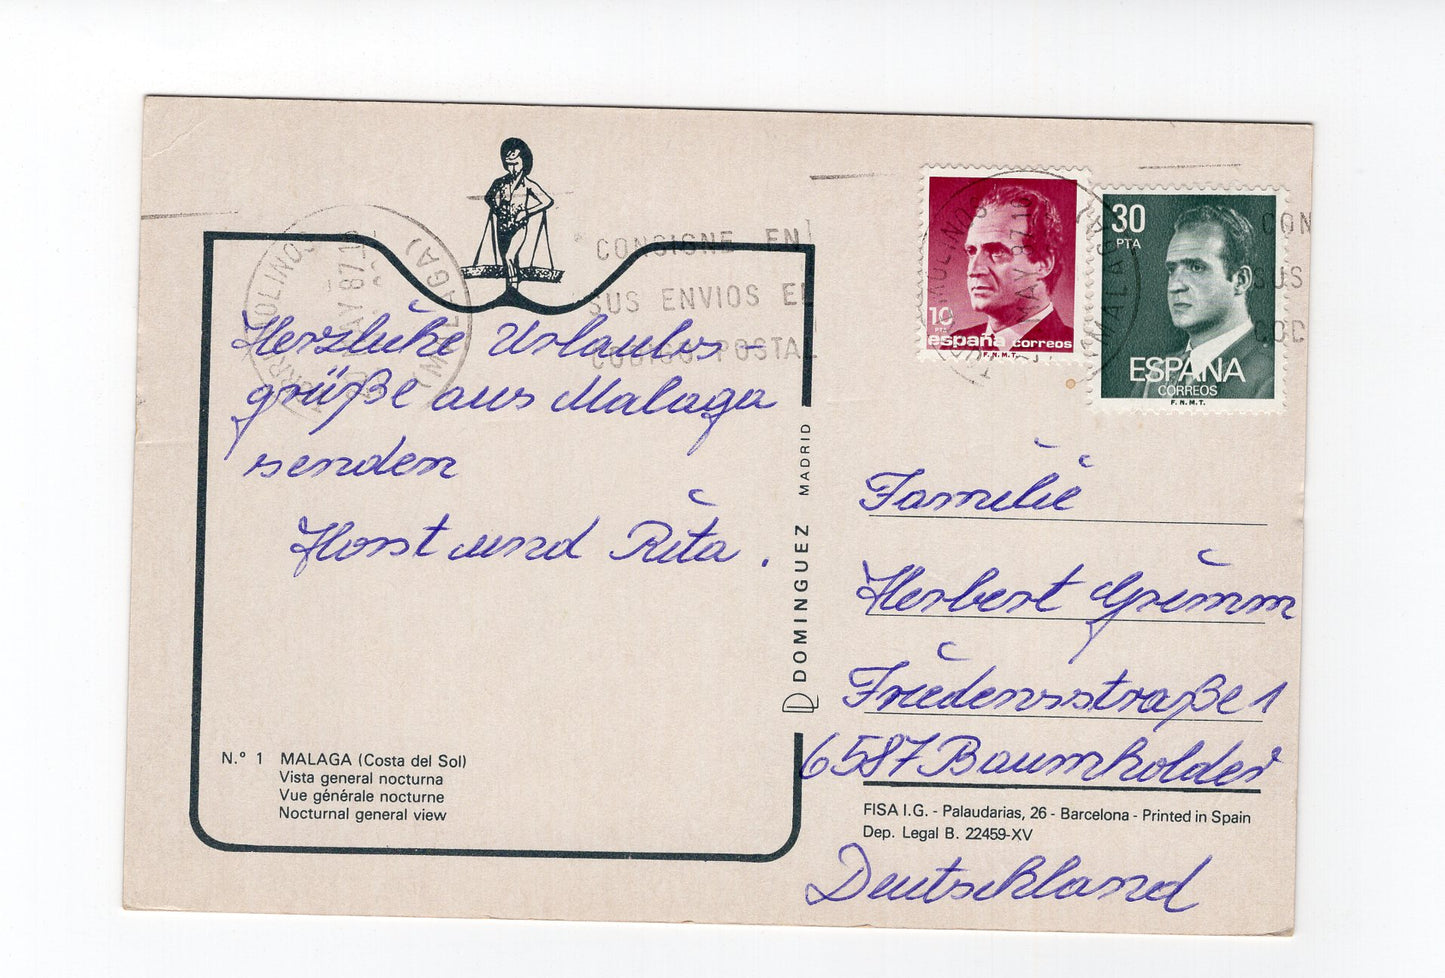 Herzliche Urlaubs-
grüße aus Malaga
senden
Horst und Rita.
CONSIGNE EN
SUS ENVIOS EL
CODIGO POSTAL
TORREMOLINOS
MAY 87
(MALAGA)
N.º 1 MALAGA (Costa del Sol)
Vista general nocturna
Vue générale nocturne
Nocturnal general view
DOMINGUEZ MADRID
10
PTA
españa correos
F.N.M.T.
30
PTA
ESPAÑA
CORREOS
F.N.M.T.
TORREMOLINOS
MAY 87
(MALAGA)
CON
SUS
COD
Familie
Herbert Grimm
Friedensstraße 1
6587 Baumholder
FISA I.G. - Palaudarias, 26 - Barcelona - Printed in Spain
Dep. Legal B. 22459-XV
Deutschland